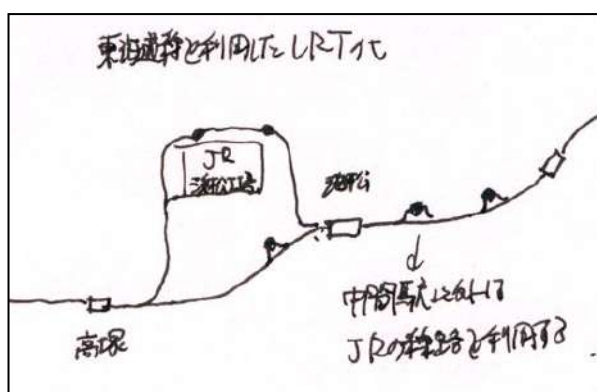 東海道線を利用したLRT化
JR
浜松工場
浜松
高塚
中間駅においては
JRの線路を利用する